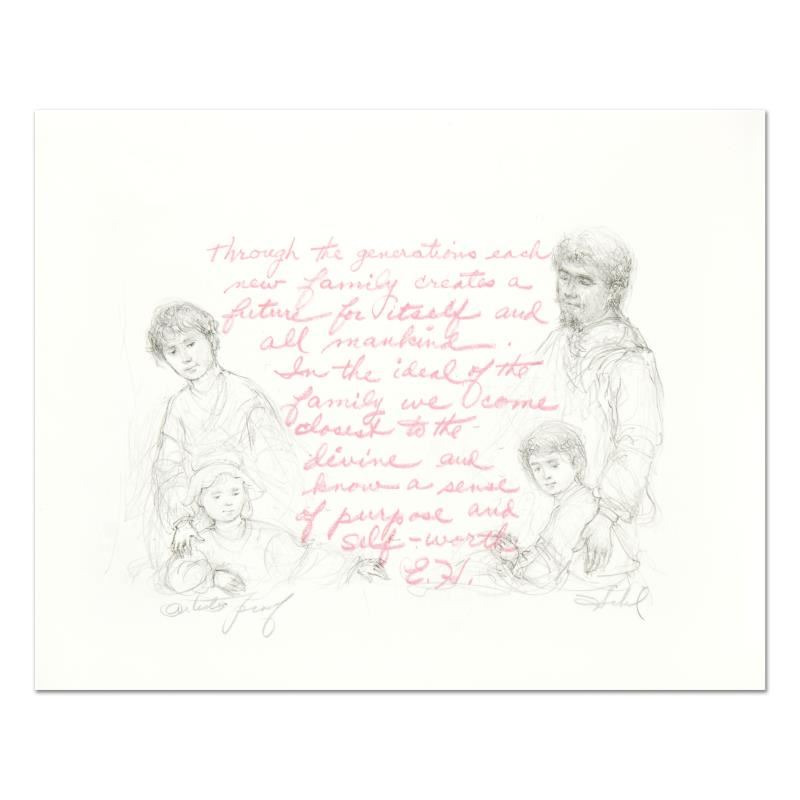 Through the generations each
new family creates a
future for itself and
all mankind.
In the ideal of the
family we come
closest to the
divine and
know a sense
of purpose and
self-worth
E.H.
artists proof
Hibel